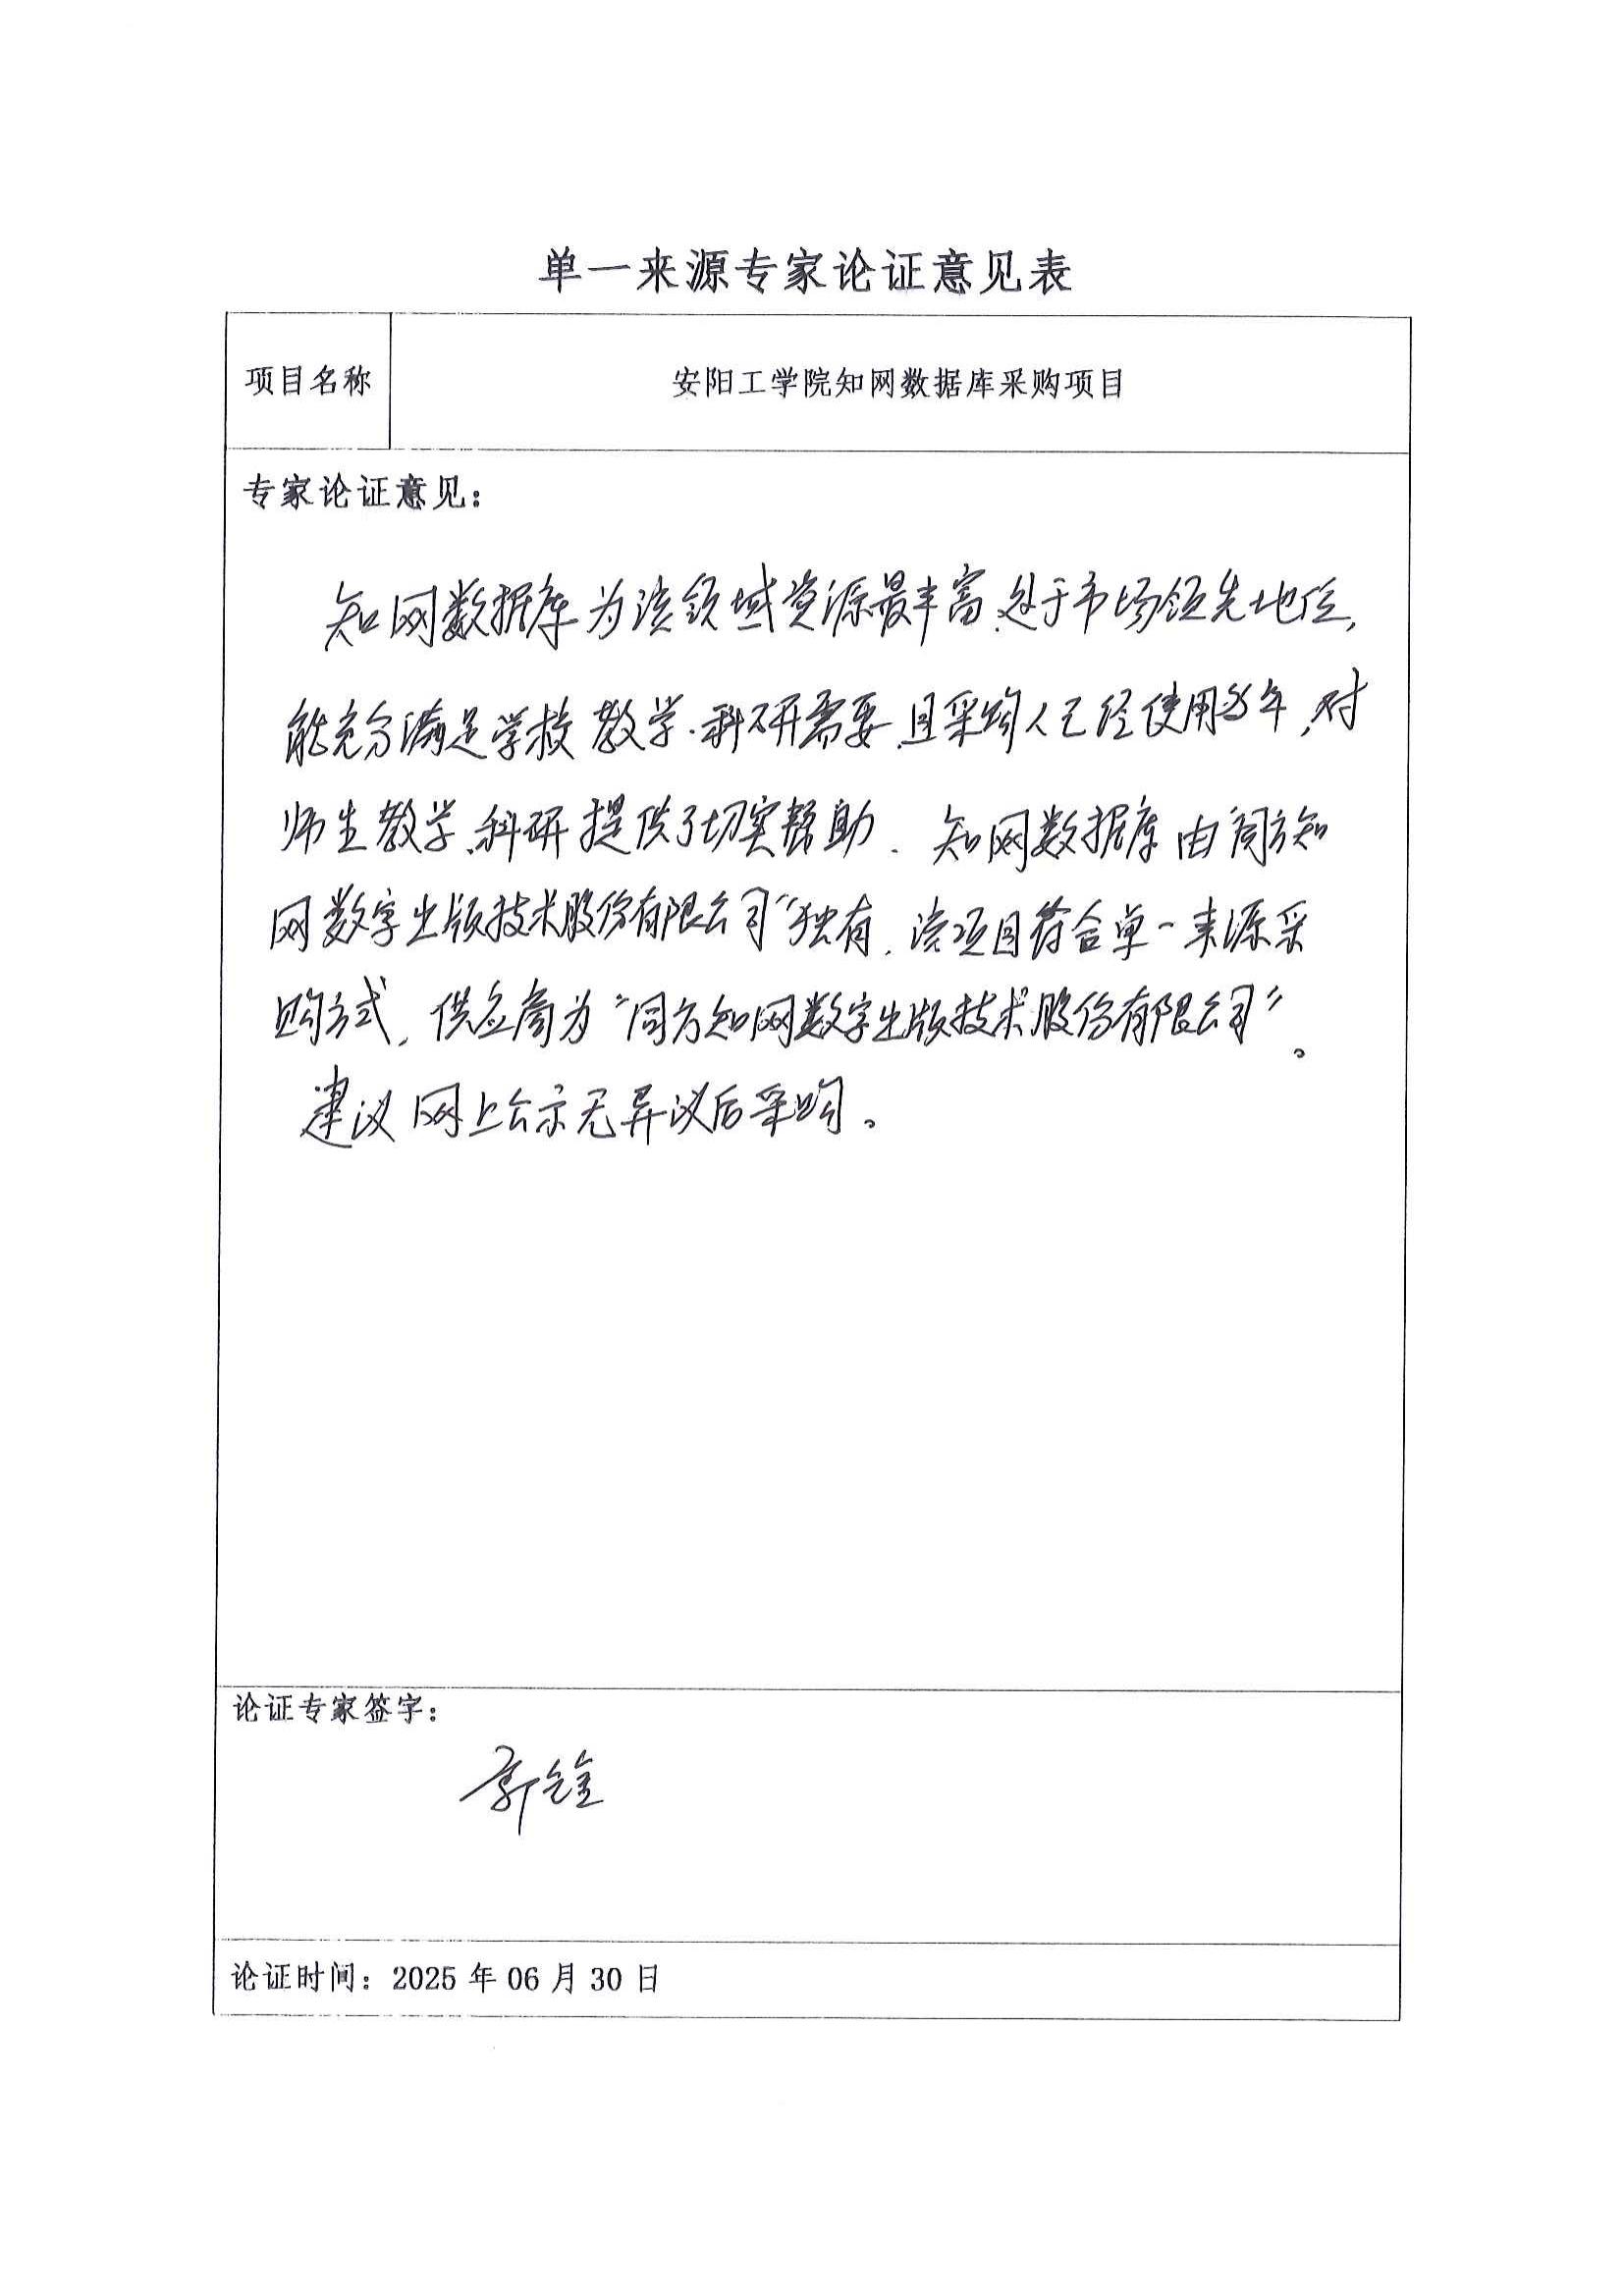 单一来源专家论证意见表
项目名称
安阳工学院知网数据库采购项目
专家论证意见：
知网数据库为该领域资源最丰富、处于市场领先地位，
能充分满足学校教学、科研需要，且采购人已经使用多年，对
师生教学、科研提供了切实帮助。知网数据库由“同方知
网数字出版技术股份有限公司”独有，该项目符合单一来源采
购方式，供应商为“同方知网数字出版技术股份有限公司”。
建议网上公示无异议后采购。
论证专家签字：
郭铨
论证时间：2025 年 06 月 30 日